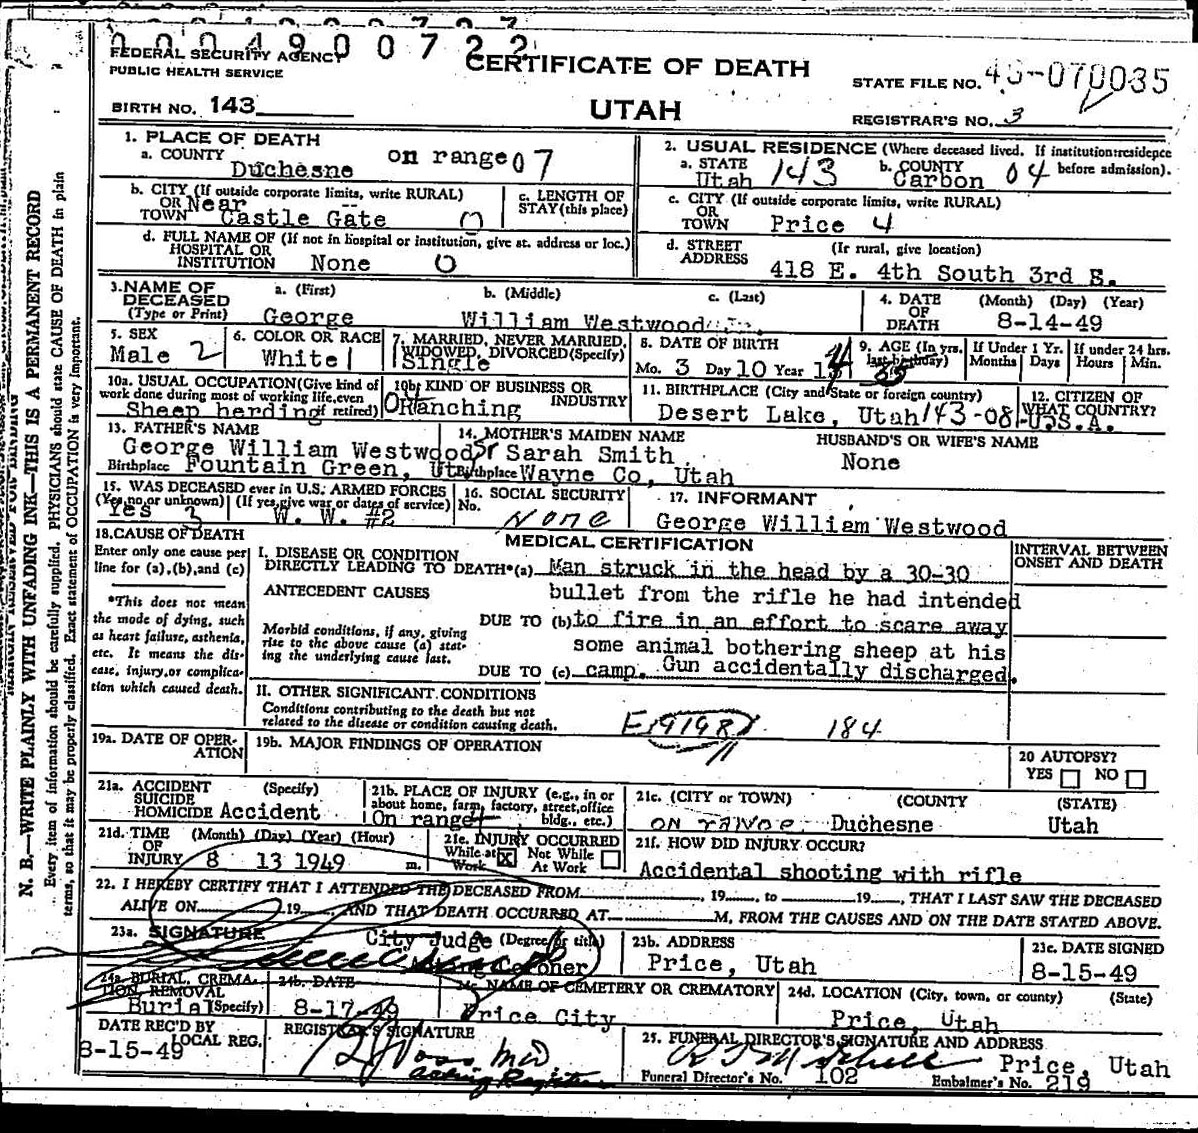 0 0 4 9 0 0 7 2 2
FEDERAL SECURITY AGENCY
PUBLIC HEALTH SERVICE
CERTIFICATE OF DEATH
STATE FILE NO. 49-070035
BIRTH NO. 143
UTAH
REGISTRAR'S NO. 3
1. PLACE OF DEATH
a. COUNTY Duchesne on range 07
2. USUAL RESIDENCE (Where deceased lived. If institution:residence before admission).
a. STATE Utah 143 b. COUNTY Carbon 04
b. CITY (If outside corporate limits, write RURAL) OR TOWN Near Castle Gate 0
c. LENGTH OF STAY (this place)
c. CITY (If outside corporate limits, write RURAL) OR TOWN Price 4
d. FULL NAME OF (If not in hospital or institution, give st. address or loc.) HOSPITAL OR INSTITUTION None 0
d. STREET ADDRESS (If rural, give location) 418 E. 4th South 3rd E.
3. NAME OF DECEASED (Type or Print)
a. (First) George
b. (Middle) William
c. (Last) Westwood Jr.
4. DATE OF DEATH (Month) (Day) (Year) 8-14-49
5. SEX Male 2
6. COLOR OR RACE White 1
7. MARRIED, NEVER MARRIED, WIDOWED, DIVORCED (Specify) Single
8. DATE OF BIRTH Mo. 3 Day 10 Year
9. AGE (In yrs. last birthday) 35
If Under 1 Yr. Months Days
If under 24 hrs. Hours Min.
10a. USUAL OCCUPATION (Give kind of work done during most of working life, even if retired) Sheep herding
10b. KIND OF BUSINESS OR INDUSTRY Ranching
11. BIRTHPLACE (City and State or foreign country) Desert Lake, Utah 143-08
12. CITIZEN OF WHAT COUNTRY? U.S.A.
13. FATHER'S NAME George William Westwood Sr
Birthplace Fountain Green, Ut.
14. MOTHER'S MAIDEN NAME Sarah Smith
Birthplace Wayne Co, Utah
HUSBAND'S OR WIFE'S NAME None
15. WAS DECEASED ever in U.S. ARMED FORCES
(Yes, no, or unknown) (If yes, give war or dates of service)
Yes 3 W. W. #2
16. SOCIAL SECURITY No. None
17. INFORMANT George William Westwood
18. CAUSE OF DEATH
Enter only one cause per line for (a), (b), and (c)
*This does not mean the mode of dying, such as heart failure, asthenia, etc. It means the disease, injury, or complication which caused death.
MEDICAL CERTIFICATION
INTERVAL BETWEEN ONSET AND DEATH
I. DISEASE OR CONDITION DIRECTLY LEADING TO DEATH*(a) Man struck in the head by a 30-30
ANTECEDENT CAUSES bullet from the rifle he had intended
Morbid conditions, if any, giving rise to the above cause (a) stating the underlying cause last.
DUE TO (b) to fire in an effort to scare away
some animal bothering sheep at his
DUE TO (c) camp. Gun accidentally discharged.
II. OTHER SIGNIFICANT CONDITIONS
Conditions contributing to the death but not related to the disease or condition causing death.
E9198 184
19a. DATE OF OPERATION
19b. MAJOR FINDINGS OF OPERATION
20 AUTOPSY?
YES NO
21a. ACCIDENT SUICIDE HOMICIDE (Specify) Accident
21b. PLACE OF INJURY (e.g., in or about home, farm, factory, street, office bldg., etc.) On range
21c. (CITY or TOWN) (COUNTY) (STATE)
ON RANGE Duchesne Utah
21d. TIME OF INJURY (Month) (Day) (Year) (Hour) 8 13 1949 m.
21e. INJURY OCCURRED While at Work X Not While At Work
21f. HOW DID INJURY OCCUR?
Accidental shooting with rifle
22. I HEREBY CERTIFY THAT I ATTENDED THE DECEASED FROM , 19 , to 19 , THAT I LAST SAW THE DECEASED
ALIVE ON 19 , AND THAT DEATH OCCURRED AT M, FROM THE CAUSES AND ON THE DATE STATED ABOVE.
23a. SIGNATURE City Judge (Degree or title)
Acting Coroner
23b. ADDRESS Price, Utah
23c. DATE SIGNED 8-15-49
24a. BURIAL, CREMATION, REMOVAL (Specify) Burial
24b. DATE 8-17-49
24c. NAME OF CEMETERY OR CREMATORY Price City
24d. LOCATION (City, town, or county) (State) Price, Utah
DATE REC'D BY LOCAL REG. 8-15-49
REGISTRAR'S SIGNATURE
Acting Registrar
25. FUNERAL DIRECTOR'S SIGNATURE AND ADDRESS
Mitchell Price, Utah
Funeral Director's No. 102 Embalmer's No. 219
N. B.—WRITE PLAINLY WITH UNFADING INK—THIS IS A PERMANENT RECORD
Every item of information should be carefully supplied. PHYSICIANS should state CAUSE OF DEATH in plain
terms, so that it may be properly classified. Exact statement of OCCUPATION is very important.
MARGIN RESERVED FOR BINDING